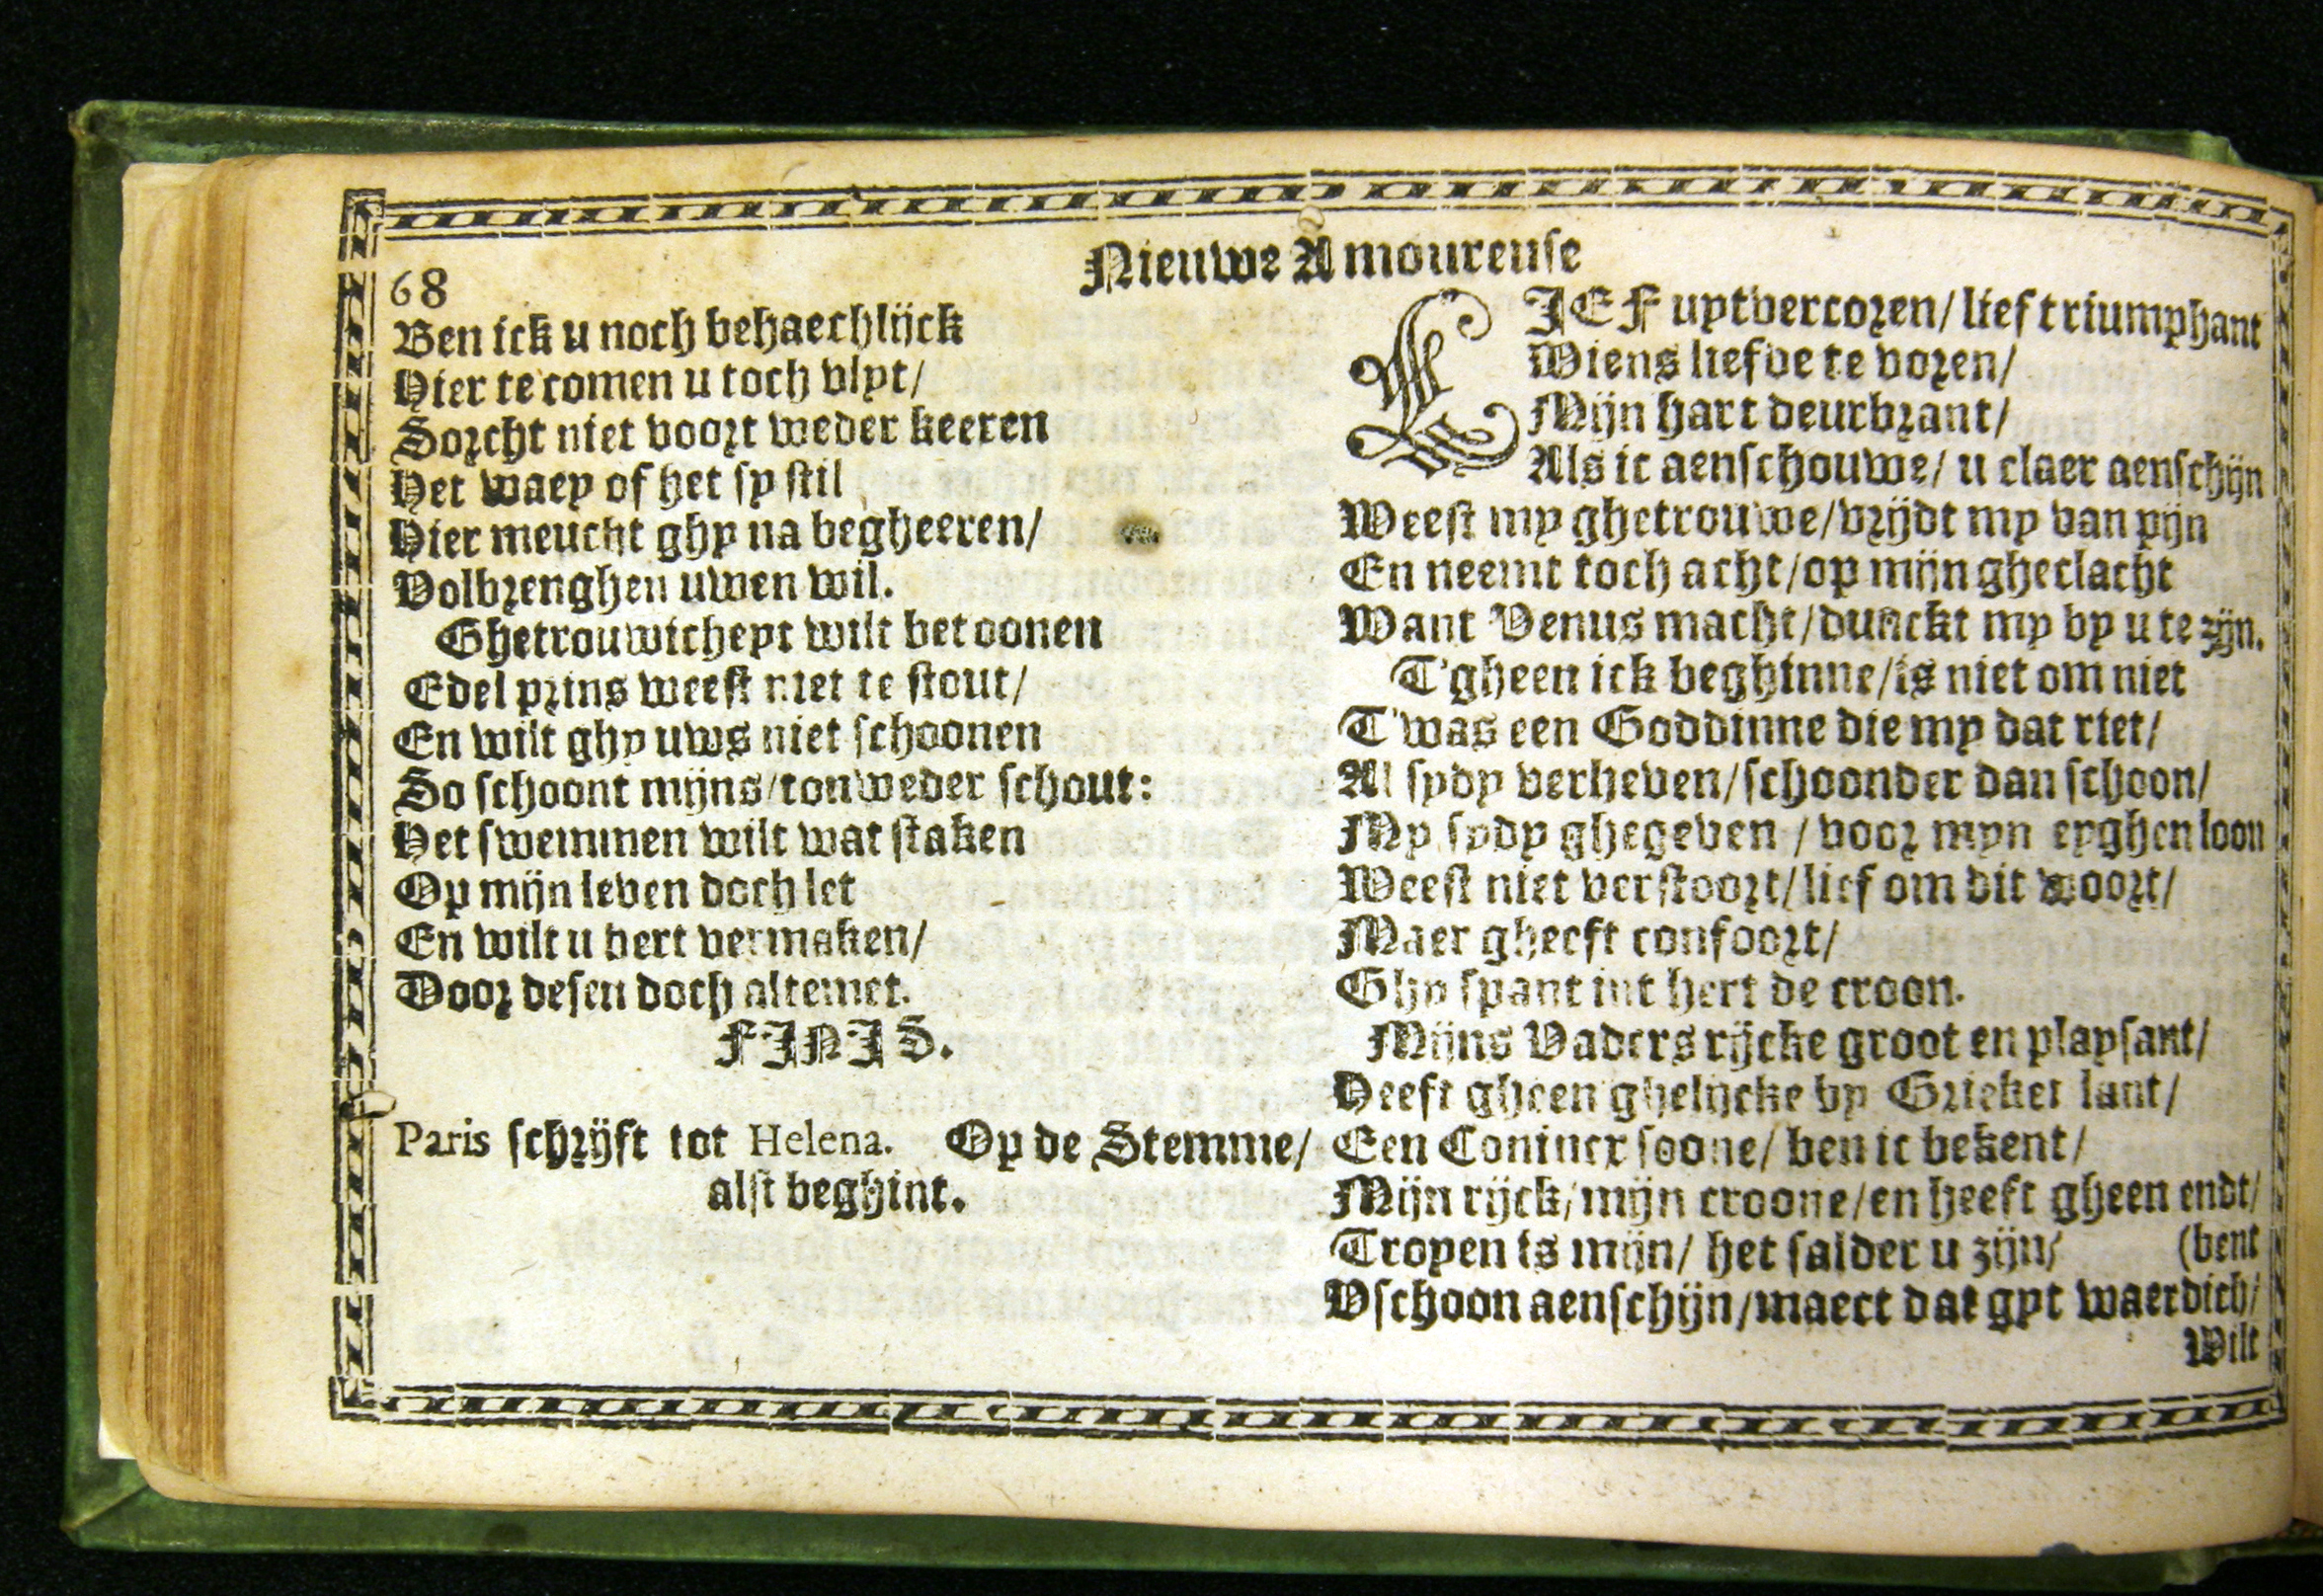 68
Nieuwe Amoureuse
Ben ick u noch behaechlijck
Hier te comen u toch vlyt/
Sorcht niet voort weder keeren
Het waey of het sy stil
Hier meucht ghy na begheeren/
Volbrenghen uwen wil.
Ghetrouwicheyt wilt betoonen
Edel prins weest niet te stout/
En wilt ghy uws niet schoonen
So schoont mijns/tonweder schout:
Het swemmen wilt wat staken
Op mijn leven doch let
En wilt u hert vermaken/
Door desen doch altemet.
FINIS.
Paris schrijft tot Helena. Op de Stemme/
alst beghint.
LIEF uytvercoren/ lief triumphant
Wiens liefde te voren/
Mijn hart deurbrant/
Als ic aenschouwe/ u claer aenschijn
Weest my ghetrouwe/vrijdt my van pijn
En neemt toch acht/op mijn gheclacht
Want Venus macht/dunckt my by u te zijn.
T'gheen ick beghinne/is niet om niet
T'was een Goddinne die my dat riet/
Al sydy verheven/schoonder dan schoon/
My sydy ghegeven / voor myn eyghen loon
Weest niet verstoort/lief om dit woort/
Maer gheeft confoort/
Ghy spant int hert de croon.
Mijns Vaders rijcke groot en playsant/
Heeft gheen ghelijcke by Grieket lant/
Een Conincx soone/ ben ic bekent/
Mijn rijck/mijn croone/en heeft gheen endt/
Tropen is mijn/ het salder u zijn/ (bent
Vschoon aenschijn/maect dat gyt waerdich/
Wilt